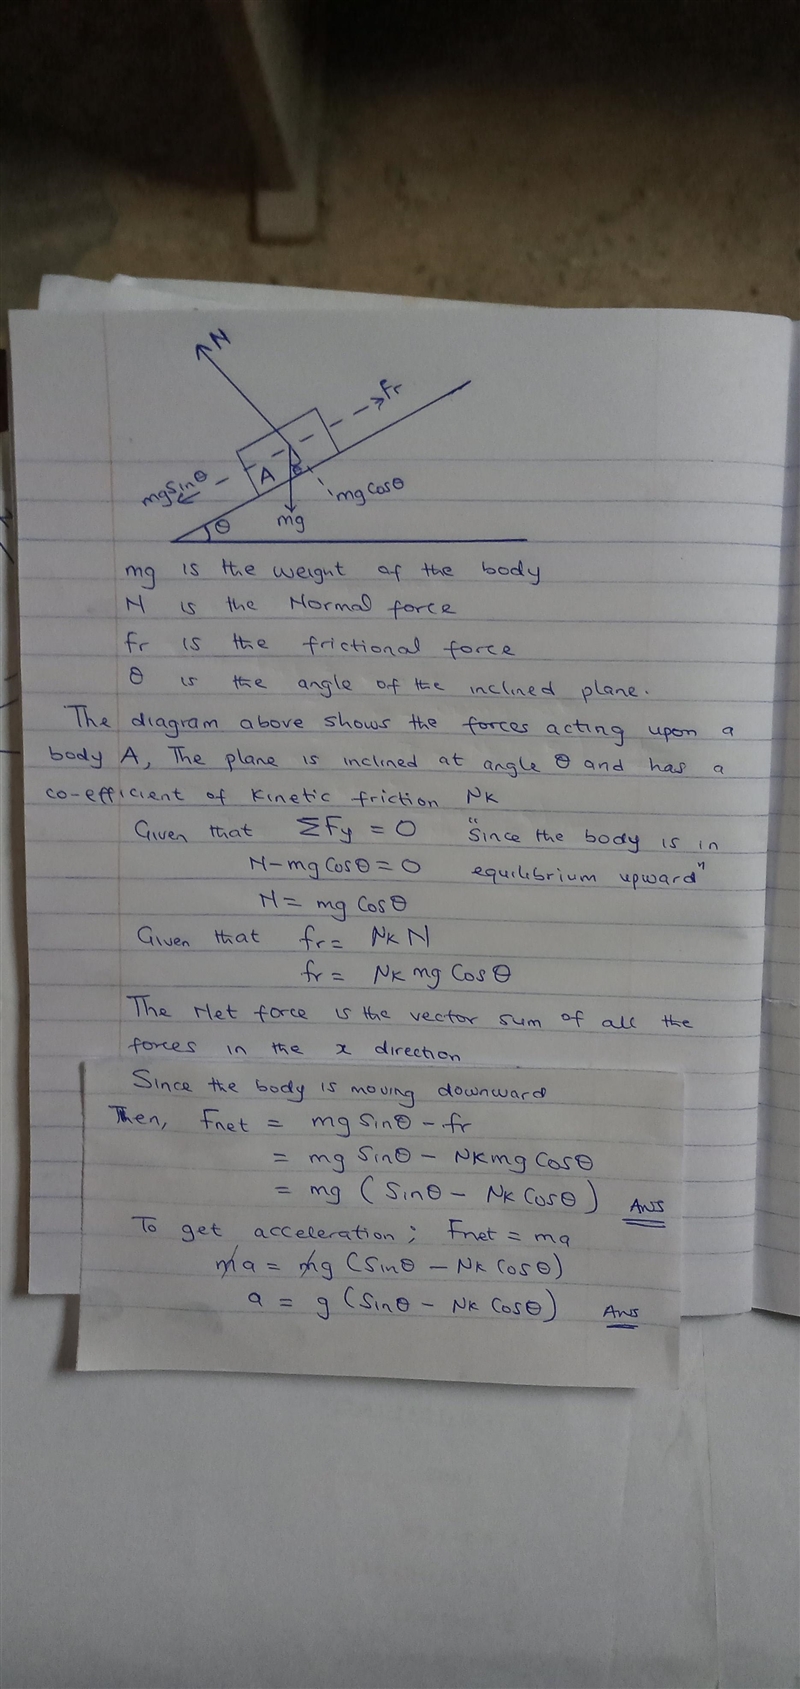 N
fr
A
θ
mgSinθ
mgCosθ
θ
mg
mg is the weight of the body
N is the Normal force
fr is the frictional force
θ is the angle of the inclined plane.
The diagram above shows the forces acting upon a
body A, The plane is inclined at angle θ and has a
co-efficient of kinetic friction μk
Given that ΣFy = 0 "Since the body is in
N-mgCosθ=0 equilibrium upward"
N= mg Cosθ
Given that fr= μkN
fr= μk mg Cosθ
The Net force is the vector sum of all the
forces in the x direction
Since the body is moving downward
Then, Fnet = mg Sinθ - fr
= mg Sinθ - μkmg Cosθ
= mg (Sinθ - μk Cosθ) Ans
To get acceleration; Fnet = ma
ma = mg (Sinθ - μk Cosθ)
a = g (Sinθ - μk Cosθ) Ans